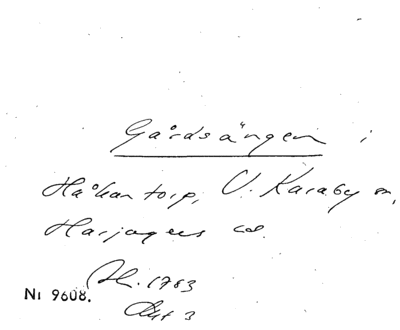 Gårdsängen i
Håkantorp, V. Karaby sn,
Harjagers hd.
1783
Nr 9608.
Akt 3